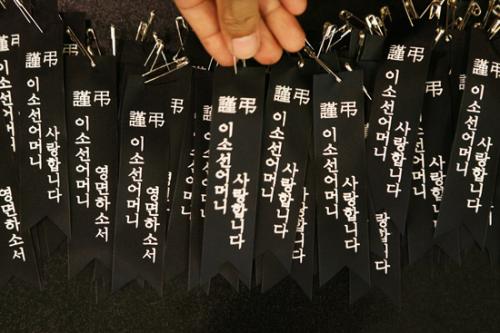 이소선어머니
영면하소서
謹弔
이소선어머니
사랑합니다
謹弔
이소선어머니
영면하소서
謹弔
이소선어머니
영면하소서
謹弔
이소선어머니
사랑합니다
謹弔
이소선어머니
사랑합니다
謹弔
이소선어머니
사랑합니다
랑합니다
謹弔
이소선어머니
사랑합니다
謹弔
이소선어머니
사랑합니다